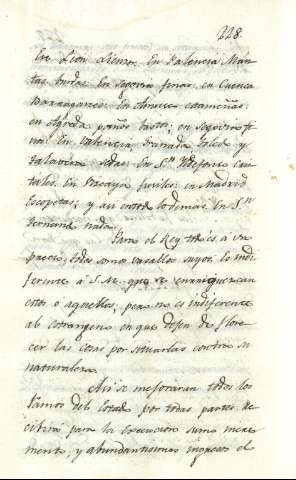 228.
En Leon Lienzos En Palencia Man-
tas burdas En Segovia finas en Cuenca
Barraganes En Olivares estameñas:
en Ezcaray paños bastos; en Segovia fi-
nos. En Valencia, Granada, Toledo y
Talavera sedas En S.n Ildefonso cris-
tales. En Vizcaya fusiles: en Madrid
Escopetas; y asi en todo lo demas: En S.n
Fernando nada.
Para el Rey todo es á un
precio; todos somos vasallos suyos: es indi-
ferente á S.M. que se enriquezcan
estos o aquellos; pero no es indiferente
al estrangero en que dejen de flore-
cer las cosas por situarlas contra su
naturaleza.
Asi se mejoraran todos los
ramos del Estado por todas partes: re-
cibirá para la execucion sumo incre-
mento, y abundantisimos ingresos el